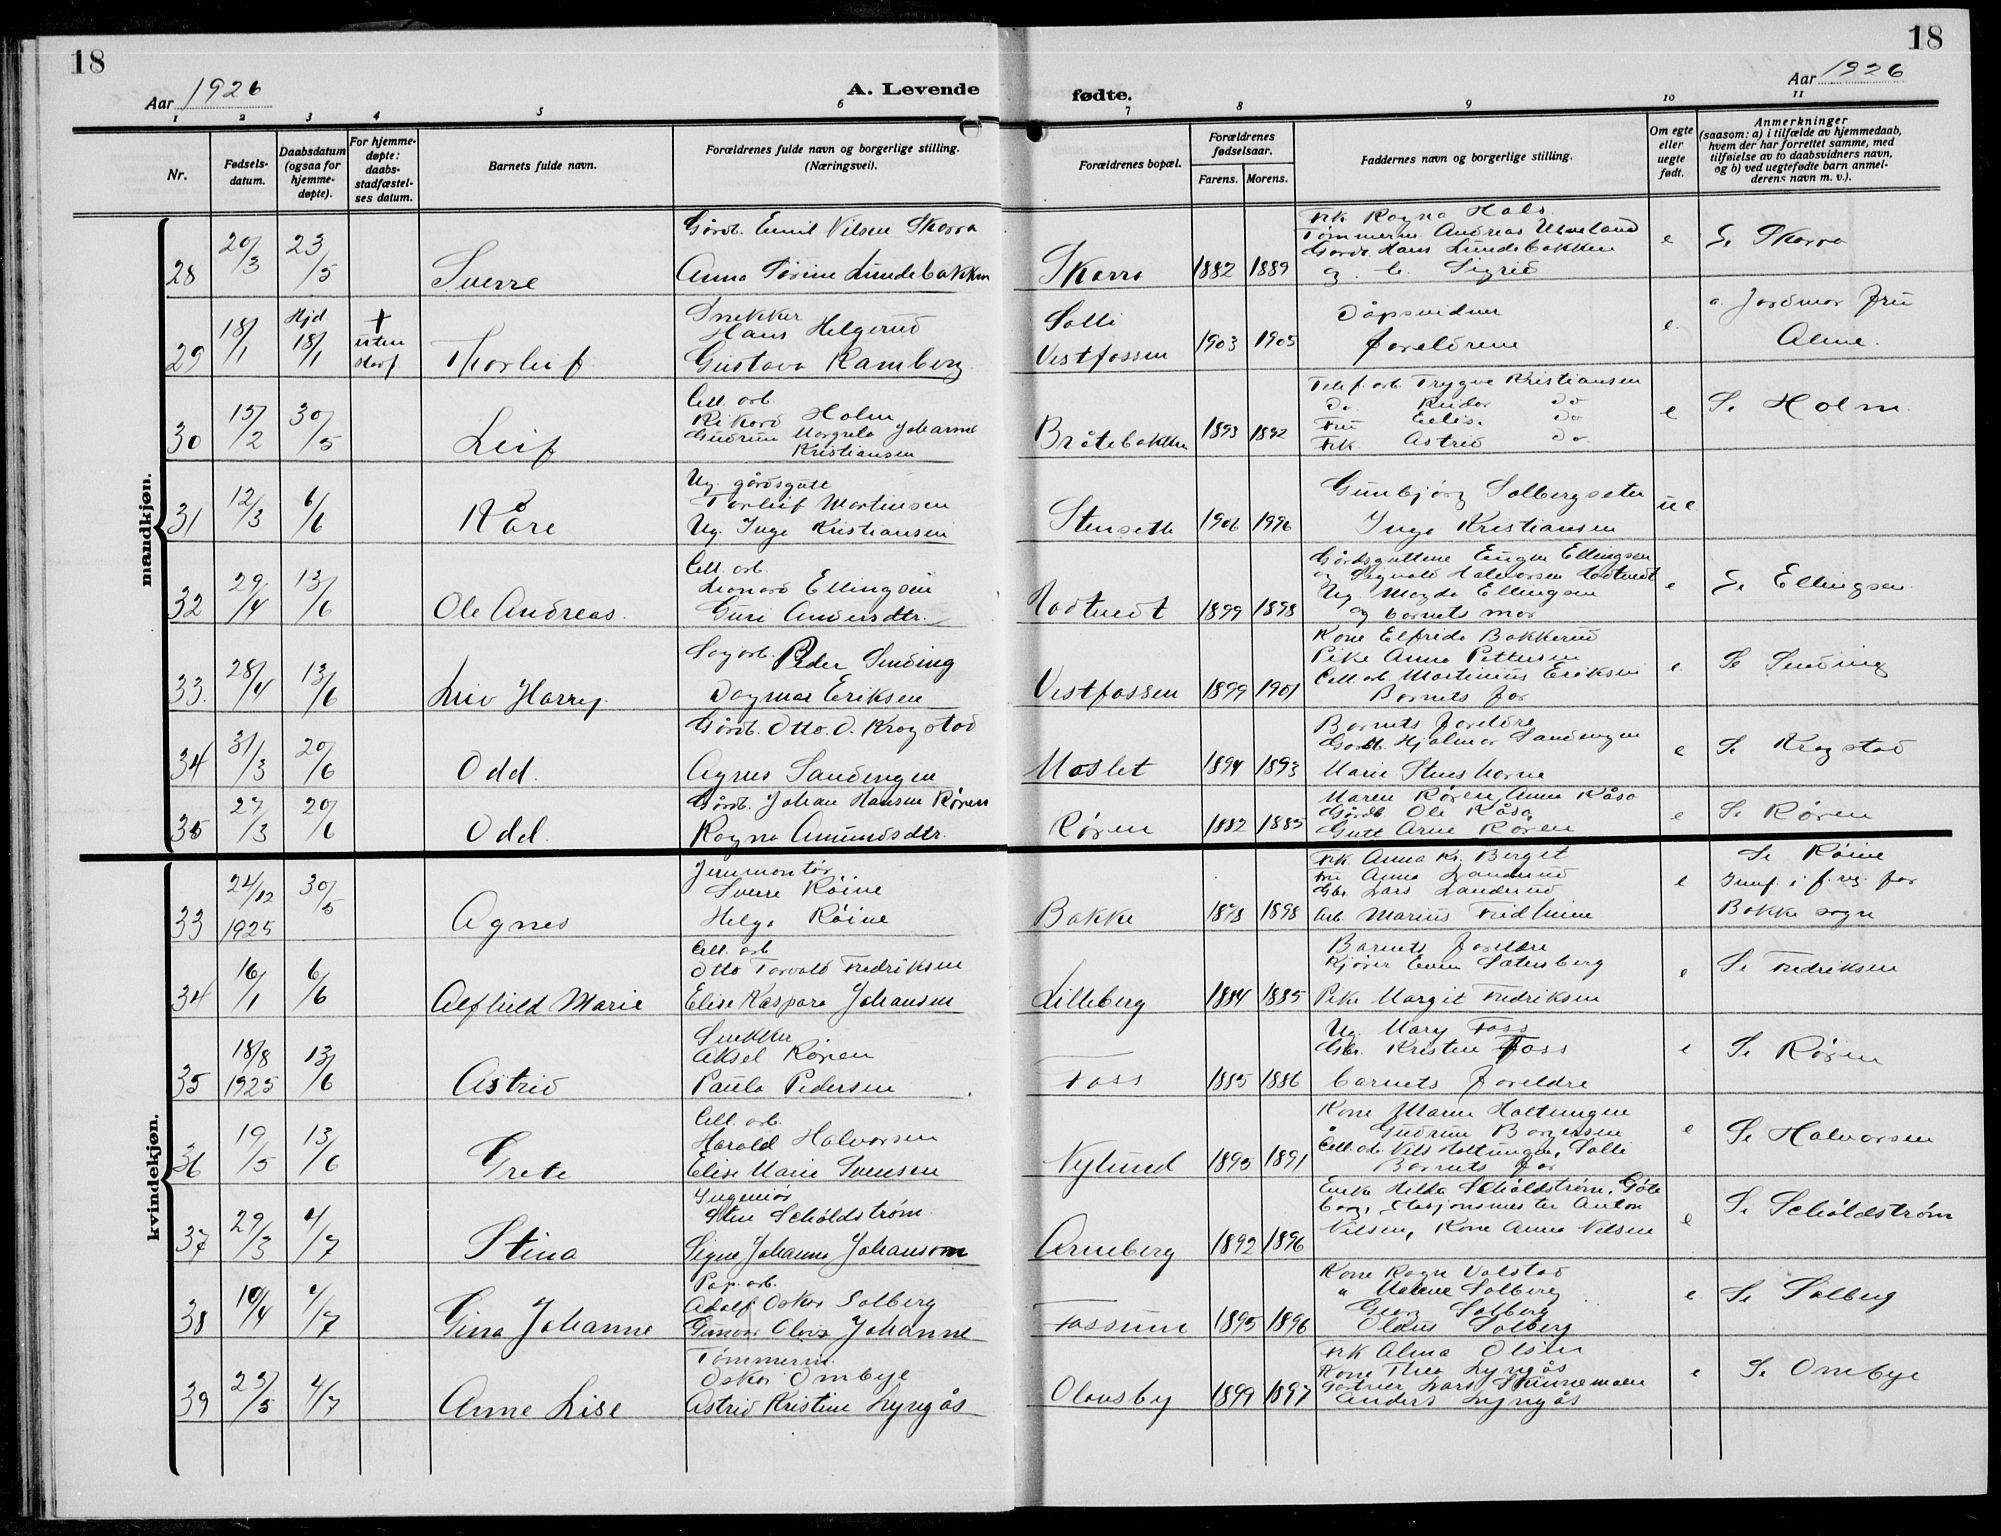 18
18
Aar 1926
A. Levende
fødte.
Aar 1926
1 2 3 4 5 6 7 8 9 10 11
Nr.
Fødsels-
datum.
Daabsdatum
(ogsaa for
hjemme-
døpte).
For hjemme-
døpte:
daabs-
stadfæstel-
ses datum.
Barnets fulde navn.
Forældrenes fulde navn og borgerlige stilling.
(Næringsvei).
Forældrenes bopæl.
Forældrenes
fødselsaar.
Farens. Morens.
Faddernes navn og borgerlige stilling.
Om egte
eller
uegte
født.
Anmerkninger
(saasom: a) i tilfælde av hjemmedaab,
hvem der har forrettet samme, med
tilføielse av to daabsvidners navn,
og b) ved uegtefødte barn anmel-
derens navn m. v.).
mandkjøn.
28 20/3 23/5 Sverre
Gårdb. Emil Nilsen Skarra
Anna Sørine Lundebakken
Skarra 1882 1889
Frk Ragna Hals
Tømmerm. Andreas Ulveland
Gårdb. Hans Lundebakken
og Sigrid
e Se Skarra
29 18/1 Hjd 18/1 + uten stadf Thorleif
Snekker
Hans Helgerud
Gustava Ramberg
Solli
Vestfossen 1903 1905
Dåpsvidner
foreldrene
e. a. Jordmor fru
Alme.
30 15/2 30/5 Leif
Cell. arb.
Rikard Holm
Gudrun Margrete Johanne
Kristiansen
Bråtebakken 1893 1892
Telef. arb Trygve Kristiansen
Do. Reidar do
Fru Elise do
Frk. Astrid do.
e Se Holm.
31 12/3 6/6 Kåre
Ug. gårdsgutt
Torleif Martinsen
Ug. Inga Kristiansen
Stenseth 1906 1996
Gunbjørg Solbergseter
Inga Kristiansen
ue
32 29/4 13/6 Ole Andreas.
Cell. arb.
Leonard Ellingsen
Guri Andersdtr.
Hodtvedt 1899 1898
Gårdsguttene Eugen Ellingsen
og Sigvald Halvorsen Hodtvedt
Ug. Magda Ellingsen
og barnets mor
e Se Ellingsen.
33. 28/4 13/6 Liv Harry.
Sagarb. Peder Sinding
Dagmar Eriksen
Vestfossen 1899 1901
Kone Elfrida Bakkerud
Pike Anna Pettersen
Cell. arb Martinius Eriksen
Barnets far
e Se Sinding
34 31/3 20/6 Odd.
Gårdb. Otto. O. Kragstad
Agnes Sandengen
Moslet 1894 1893
Barnets foreldre
Gårdb. Hjalmar Sandengen
Marie Stenshorne
e Se Kragstad
35 27/3 20/6 Odd.
Gårdb. Johan Hansen Røren
Ragna Amundsdtr.
Røren 1882 1885
Maren Røren, Anna Kåsa
Gårdb. Ole Kåsa,
Gutt Arne Røren
e Se Røren
kvindekjøn.
33 24/12 1925 30/5 Agnes
Jernmontør
Sverre Røine
Helga Røine
Bakke 1898 1898
Frk Anna Kr. Berget
Fru Anna Landerud
Gbr Lars Landerud
Arb. Marius Fridheim
e Se Røine
Innf. i f. reg. for
Bakke sogn
34 16/1 6/6 Alfhild Marie
Cell. arb
Otto Torvald Fredriksen
Elise Kaspara Johansen
Lilleberg 1884 1885
Barnets foreldre
Kjører Even Satersberg
Pike Margit Fredriksen
e Se Fredriksen
35 18/8 1925 13/6 Astrid
Snekker
Aksel Røren
Paula Pedersen
Foss 1885 1886
Ug. Mary Foss
Gbr. Kristen Foss
barnets foreldre
e Se Røren
36 19/5 13/6 Grete
Cell. arb.
Harald Halvorsen
Elise Marie Svensen
Nylund 1893 1891
Kone Maren Holtungen
Gudrun Borgersen
Cell. arb. Nils Holtungen, Solli
Barnets far
e Se Halvorsen
37 29/3 4/7 Stina
Ingeniør
Sten Schöldstrøm
Signe Johanna Johansson
Arneberg 1892 1896
Enke Hilda Schöldstrøm, Göte
borg, Stasjonsmester Anton
Nilsen, Kone Anna Nilsen
e Se Schöldstrøm
38 10/4 4/7 Gina Johanne
Pap. arb.
Adolf Oskar Solberg
Gunvor Olava Johanne
Fossum 1895 1896
Kone Ragn Valstad
" Malene Solberg
Georg Solberg
Olaus Solberg
e Se Solberg
39 23/5 4/7 Anne Lise
Tømmerm.
Oskar Ombye
Astrid Kristine Lyngås
Olausby 1899 1897
Frk Alma Olsen
Kone Thea Lyngås
Gartner Lars Skinnemoen
Anders Lyngås
e Se Ombye